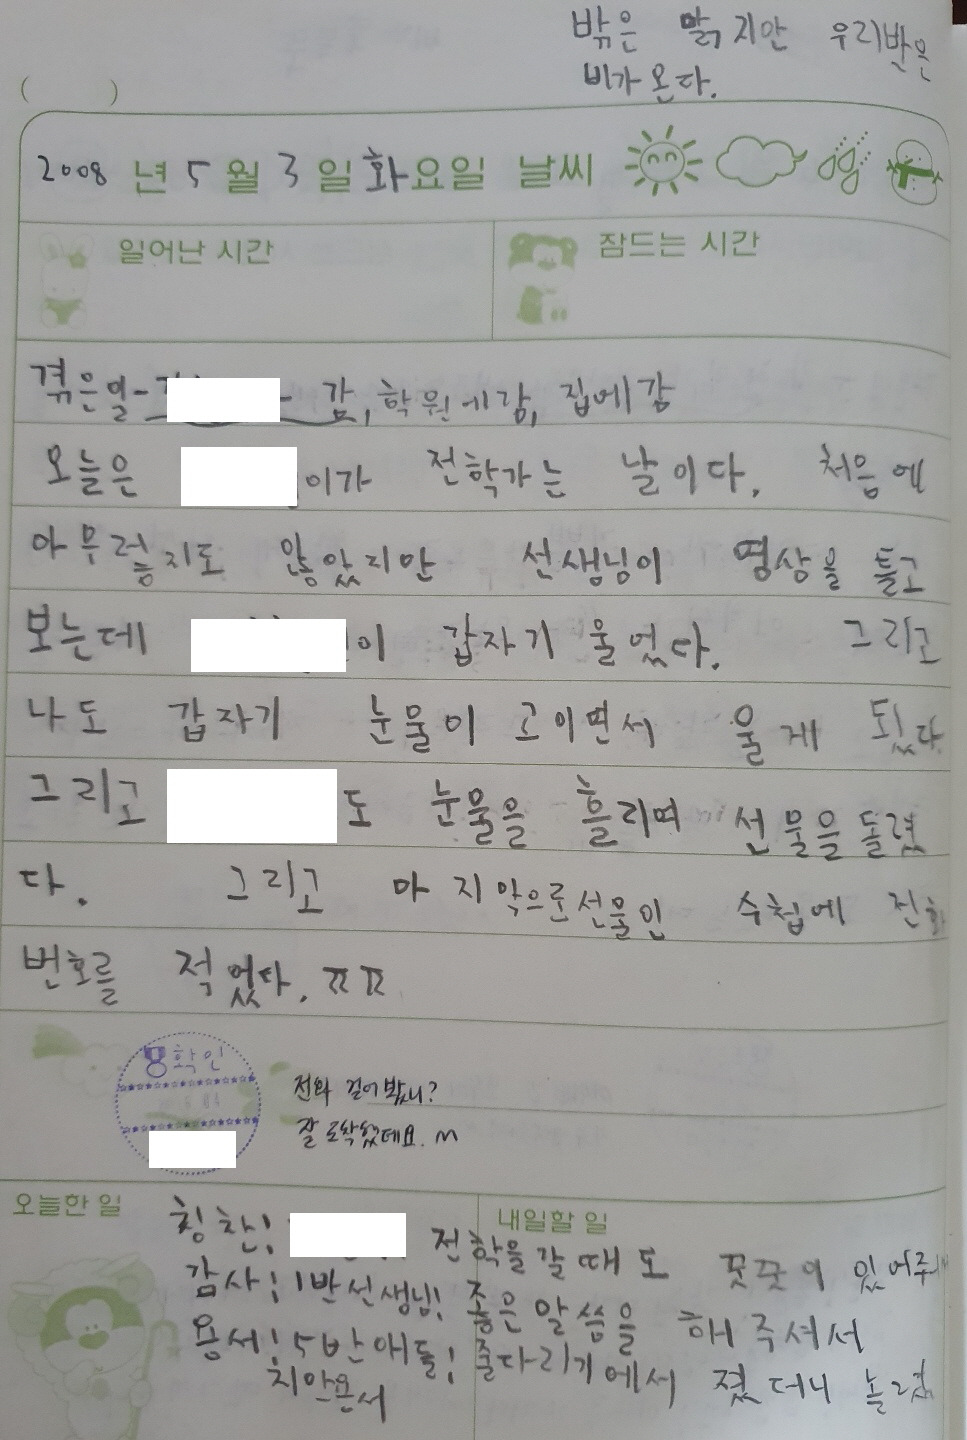 밖은 맑지안 우리반은
비가 온다.
( )
2008 년 5 월 3 일 화요일 날씨
일어난 시간 잠드는 시간
겪은일- 감, 학원에감, 집에감
오늘은 이가 전학가는 날이다. 처음에
아무러츰지도 않았지만 선생님이 영상을 틀고
보는데 이 갑자기 울었다. 그리고
나도 갑자기 눈물이 고이면서 울게 됬다
그리고 도 눈물을 흘리며 선물을 돌렸
다. 그리고 마지막으로 선물인 수첩에 전화
번호를 적었다. ㅠㅠ
확인
전화 걸어봤니?
잘 도착했데요.
오늘한 일 내일할 일
칭찬! 전학을 갈 때도 꿋꿋이 있어주
감사! 1반선생님! 좋은 말씀을 해 주셔서
용서! 5반애들! 줄다리기에서 졌더니 놀려